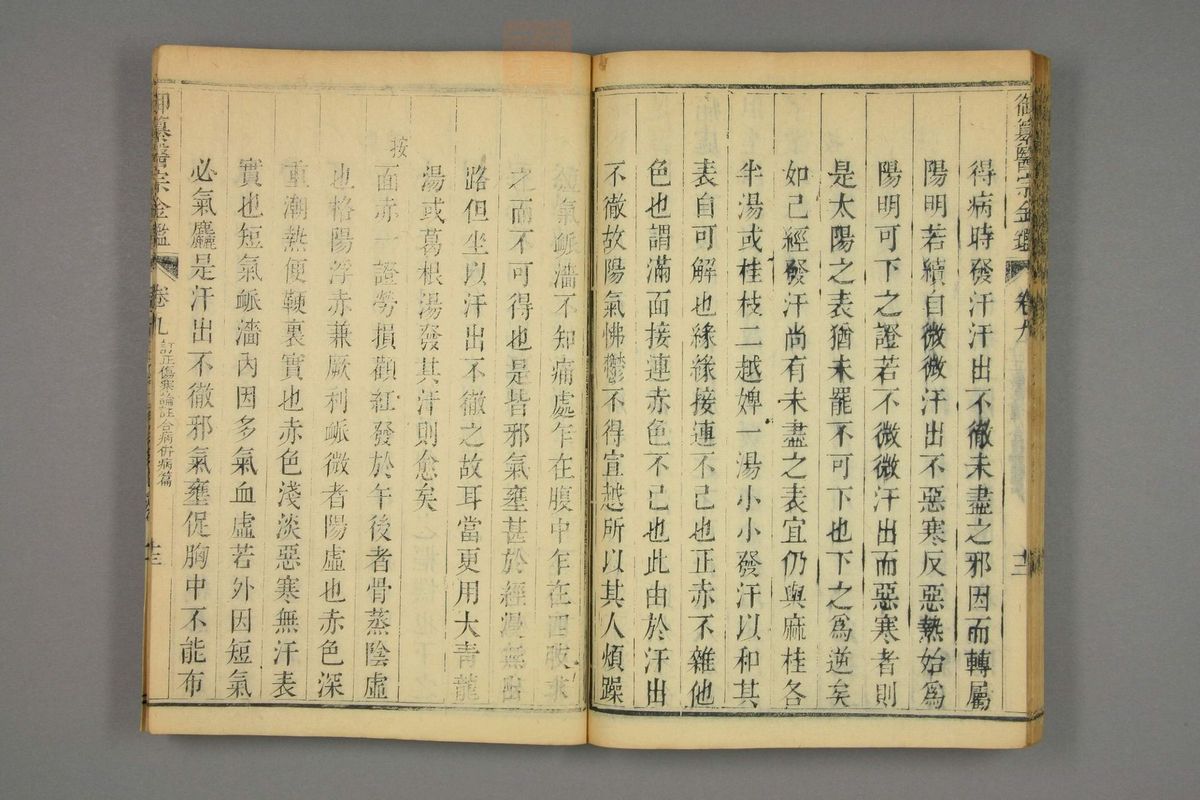 御纂醫宗金鑑 卷九 十二
得病時發汗汗出不徹未盡之邪因而轉屬
陽明若續自微微汗出不惡寒反惡熱始爲
陽明可下之證若不微微汗出而惡寒者則
是太陽之表猶未罷不可下也下之爲逆矣
如已經發汗尚有未盡之表宜仍與麻桂各
半湯或桂枝二越婢一湯小小發汗以和其
表自可解也緣緣接連不已也正赤不雜他
色也謂滿面接連赤色不已也此由於汗出
不徹故陽氣怫鬱不得宣越所以其人煩躁
短氣脈濇不知痛處乍在腹中乍在四肢求
之而不可得也是皆邪氣壅甚於經漫無出
路但坐以汗出不徹之故耳當更用大青龍
湯或葛根湯發其汗則愈矣
按
面赤一證勞損顴紅發於午後者骨蒸陰虛
也格陽浮赤兼厥利脈微者陽虛也赤色深
重潮熱便鞕裏實也赤色淺淡惡寒無汗表
實也短氣脈濇內因多氣血虛若外因短氣
必氣麤是汗出不徹邪氣壅促胸中不能布
御纂醫宗金鑑 卷九 訂正傷寒論註 合病併病篇 十三